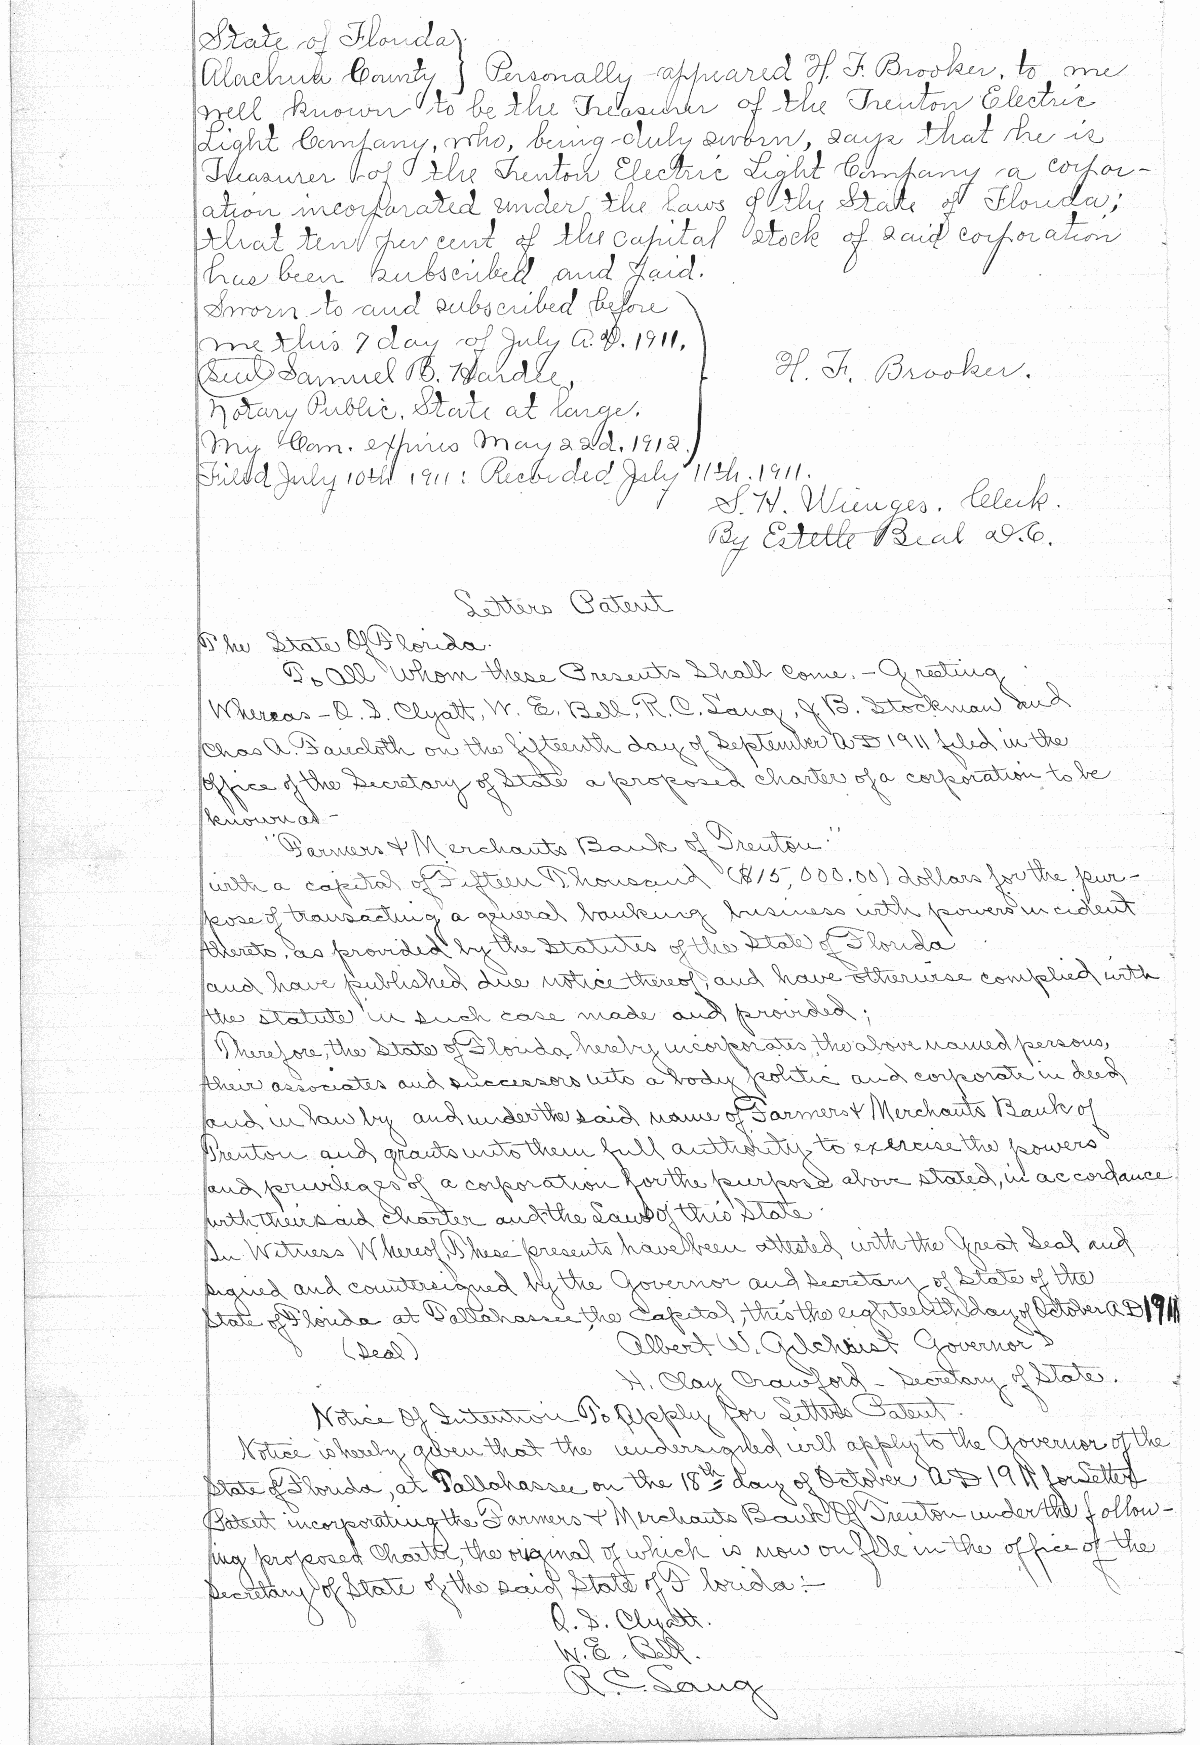 State of Florida }
Alachua County } Personally appeared H. F. Brooker, to me
well known to be the Treasurer of the Trenton Electric
Light Company, who, being duly sworn, says that he is
Treasurer of the Trenton Electric Light Company a corpor-
ation incorporated under the laws of the State of Florida;
that ten per cent of the capital stock of said corporation
has been subscribed and paid.
Sworn to and subscribed before
me this 7 day of July A.D. 1911.
(Seal) Samuel B.
H. F. Brooker.
Notary Public, State at large.
My Com. expires May 22d, 1912.
Filed July 10th 1911: Recorded July 11th. 1911.
S. H. Wienges. Clerk.
By Estelle Beal D.C.
Letters Patent
The State Of Florida.
To All Whom these Presents Shall Come. - Greeting
Whereas - S. Clyatt, W. E. Bell, R. C. B. Stockman and
Chas A. Faircloth on the fifteenth day of September A D 1911 filed in the
office of the Secretary of State a proposed charter of a corporation to be
known as -
"Farmers & Merchants Bank of Trenton."
with a capital of Fifteen Thousand ($15,000.00) dollars for the pur-
pose of transacting a general banking business with powers incident
thereto, as provided by the Statutes of the State of Florida
and have published due notice thereof, and have otherwise complied with
the statute in such case made and provided;
Therefore, the State of Florida hereby incorporates, the above named persons,
their associates and successors into a body politic and corporate in deed
and in law by and under the said name of Farmers & Merchants Bank of
Trenton and grants unto them full authority to exercise the powers
and privileges of a corporation for the purpose above stated, in accordance
with their said charter and the Laws of this State.
In Witness Whereof, These presents have been attested with the Great Seal and
signed and countersigned by the Governor and Secretary of State of the
State of Florida at Tallahassee, the Capital, this the eighteenth day of October A D 1911
(Seal) Albert W. Gilchrist Governor
H. Clay Crawford - Secretary of State.
Notice Of Intention To Apply for Letters Patent.
Notice is hereby given that the undersigned will apply to the Governor of the
State of Florida, at Tallahassee on the 18th day of October A D 1911 for Letters
Patent incorporating the Farmers & Merchants Bank Of Trenton under the follow-
ing proposed Charter, the original of which is now on file in the office of the
Secretary of State of the said State of Florida:-
S. Clyatt.
W. E. Bell.
R. C.